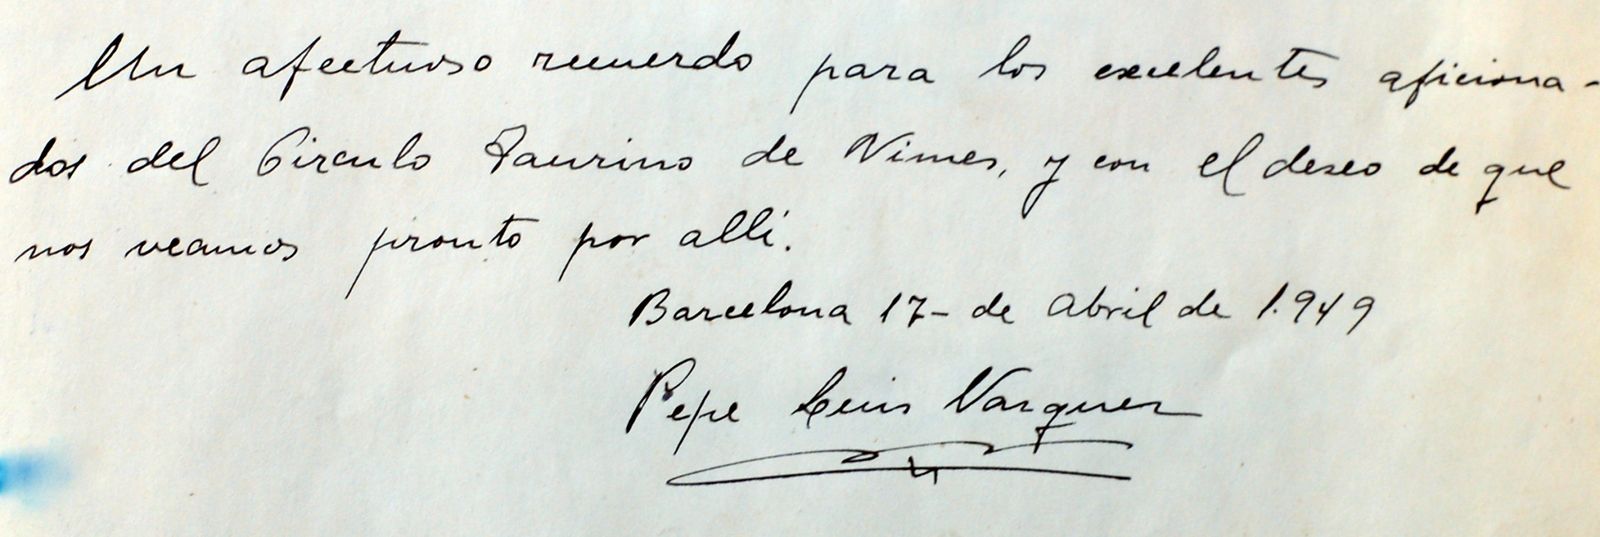 Un afectuoso recuerdo para los excelentes aficiona-
dos del Circulo Taurino de Nimes, y con el deseo de que
nos veamos pronto por alli.
Barcelona 17- de Abril de 1.949
Pepe Luis Vazquez